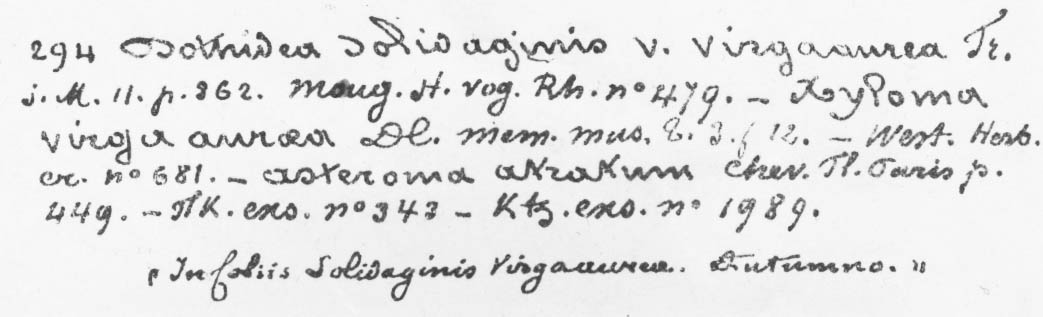 294 Dothidea Solidaginis v. virgaaurea Fr.
S. M. II. p. 562. Moug. H. vog. Rh. nº 479. – Xyloma
virga aurea DC. mem. mus. t. 3. f 12. – West. Herb.
cr. nº 681. – asteroma atratum Chev. Fl. Paris p.
449. – FK. exs. nº 343 – Ktz. exs. nº 1989.
„ In foliis Solidaginis Virgaaurea. Autumno. "